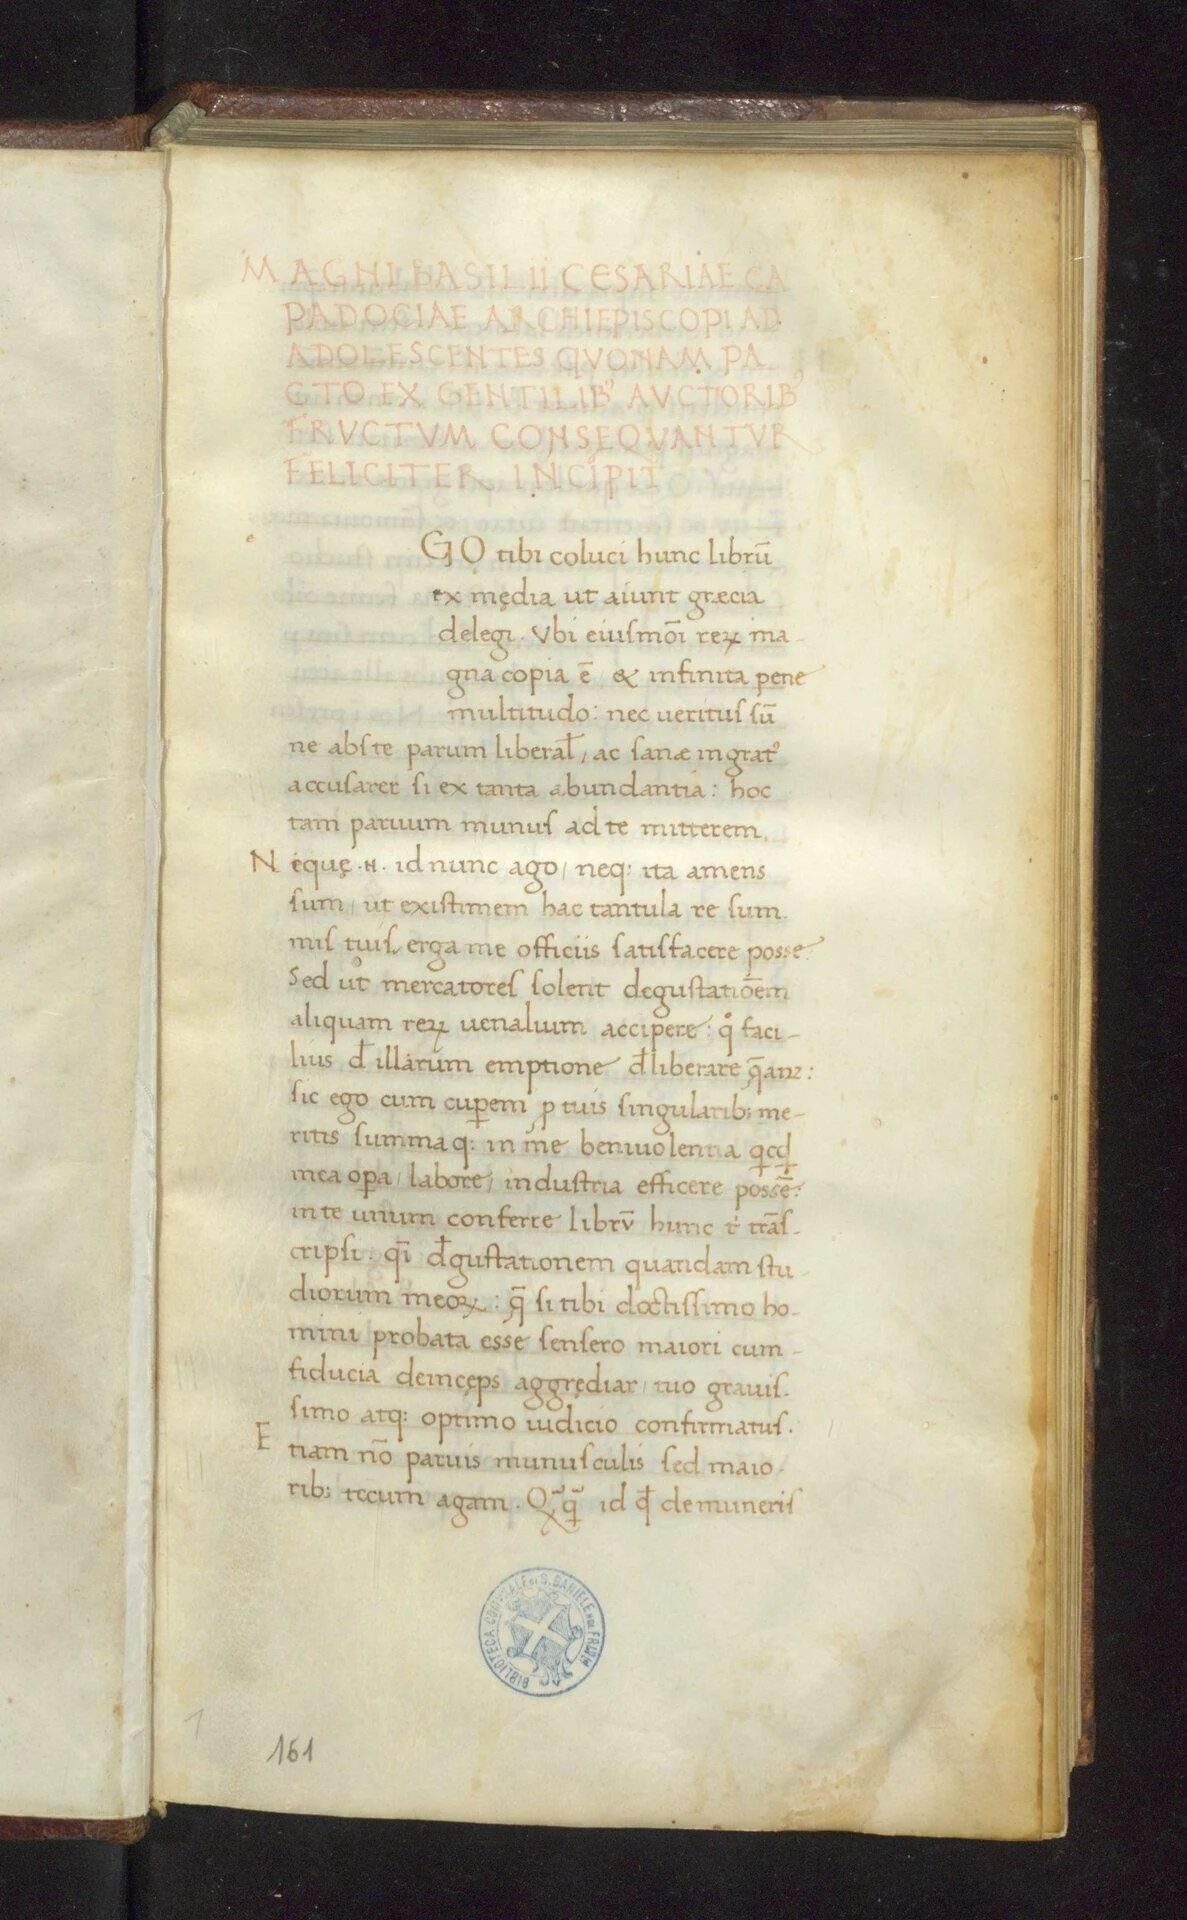 MAGNI BASILII CESARIAE CA
PADOCIAE ARCHIEPISCOPI AD
ADOLESCENTES QVONAM PA
CTO EX GENTILIBꝰ AVCTORIBꝰ
FRVCTVM CONSEQVANTVR
FELICITER INCIPIT
e GO tibi coluci hunc librū
ex mędia ut aiunt græcia
delegi. Vbi eiusmōi reꝝ ma-
gna copia ē / & infinita pene
multitudo: nec ueritus sū
ne abs te parum liberal̄ / ac sanæ ingratꝰ
accusarer si ex tanta abundantia: hoc
tam paruum munus ad te mitterem.
Nequę .H. id nunc ago / neq: ita amens
sum / ut existimem hac tantula re sum-
mis tuis erga me officiis satisfacere posse.
Sed ut mercatores solent degustatiōem
aliquam reꝝ uenalium accipere: qͦ faci-
lius đ illarum emptione đliberare q̄anz:
sic ego cum cuꝑem ꝓ tuis singularib; me-
ritis summaq: in me beniuolentia qcqd
mea oꝑa / labore / industria efficere possē:
in te unum conferre librū hunc t' trās-
cripsi. qi̅ đgustationem quandam stu-
diorum meoꝝ: q̄ si tibi doctissimo ho-
mini probata esse sensero maiori cum
fiducia deincęps aggrędiar / tuo grauis-
simo atq: optimo iudicio confirmatus.
Etiam nō paruis munusculis sed maio-
rib; tecum agam. Qꝗ̄ id qđ de muneris
BIBLIOTECA COMUNALE DI S. DANIELE NEL FRIULI
1
161